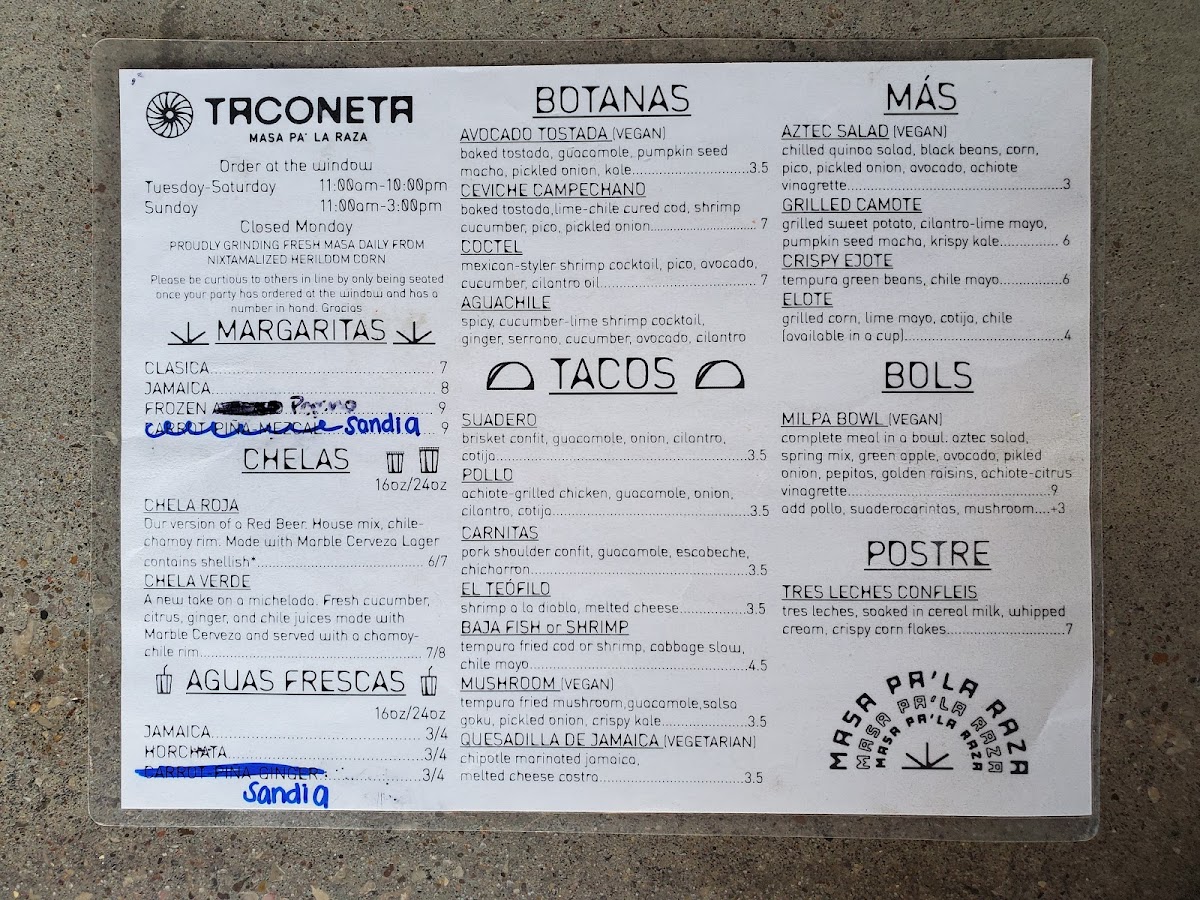 TACONETA
MASA PA' LA RAZA
Order at the window
Tuesday-Saturday 11:00am-10:00pm
Sunday 11:00am-3:00pm
Closed Monday
PROUDLY GRINDING FRESH MASA DAILY FROM
NIXTAMALIZED HERILOOM CORN
Please be curtious to others in line by only being seated
once your party has ordered at the window and has a
number in hand. Gracias
MARGARITAS
CLASICA 7
JAMAICA 8
FROZEN 9
CARROT PIÑA MEZCAL sandia 9
CHELAS
16oz/24oz
CHELA ROJA
Our version of a Red Beer. House mix, chile-
chamoy rim. Made with Marble Cerveza Lager
contains shellish* 6/7
CHELA VERDE
A new take on a michelada. Fresh cucumber,
citrus, ginger, and chile juices made with
Marble Cerveza and served with a chamoy-
chile rim 7/8
AGUAS FRESCAS
16oz/24oz
JAMAICA 3/4
HORCHATA 3/4
CARROT PIÑA GINGER 3/4
Sandia
BOTANAS
AVOCADO TOSTADA (VEGAN)
baked tostada, guacamole, pumpkin seed
macha, pickled onion, kale 3.5
CEVICHE CAMPECHANO
baked tostada,lime-chile cured cod, shrimp
cucumber, pico, pickled onion 7
COCTEL
mexican-styler shrimp cocktail, pico, avocado,
cucumber, cilantro oil 7
AGUACHILE
spicy, cucumber-lime shrimp cocktail,
ginger, serrano, cucumber, avocado, cilantro
TACOS
SUADERO
brisket confit, guacamole, onion, cilantro,
cotija 3.5
POLLO
achiote-grilled chicken, guacamole, onion,
cilantro, cotija 3.5
CARNITAS
pork shoulder confit, guacamole, escabeche,
chicharron 3.5
EL TEÓFILO
shrimp a la diabla, melted cheese 3.5
BAJA FISH or SHRIMP
tempura fried cod or shrimp, cabbage slaw,
chile mayo 4.5
MUSHROOM (VEGAN)
tempura fried mushroom,guacamole,salsa
goku, pickled onion, crispy kale 3.5
QUESADILLA DE JAMAICA (VEGETARIAN)
chipotle marinated jamaica,
melted cheese costra 3.5
MÁS
AZTEC SALAD (VEGAN)
chilled quinoa salad, black beans, corn,
pico, pickled onion, avocado, achiote
vinagrette 3
GRILLED CAMOTE
grilled sweet potato, cilantro-lime mayo,
pumpkin seed macha, krispy kale 6
CRISPY EJOTE
tempura green beans, chile mayo 6
ELOTE
grilled corn, lime mayo, cotija, chile
(available in a cup) 4
BOLS
MILPA BOWL (VEGAN)
complete meal in a bowl. aztec salad,
spring mix, green apple, avocado, pikled
onion, pepitas, golden raisins, achiote-citrus
vinagrette 9
add pollo, suaderocarintas, mushroom....+3
POSTRE
TRES LECHES CONFLEIS
tres leches, soaked in cereal milk, whipped
cream, crispy corn flakes 7
MASA PA'LA RAZA
MASA PA'LA RAZA
MASA PA'LA RAZA